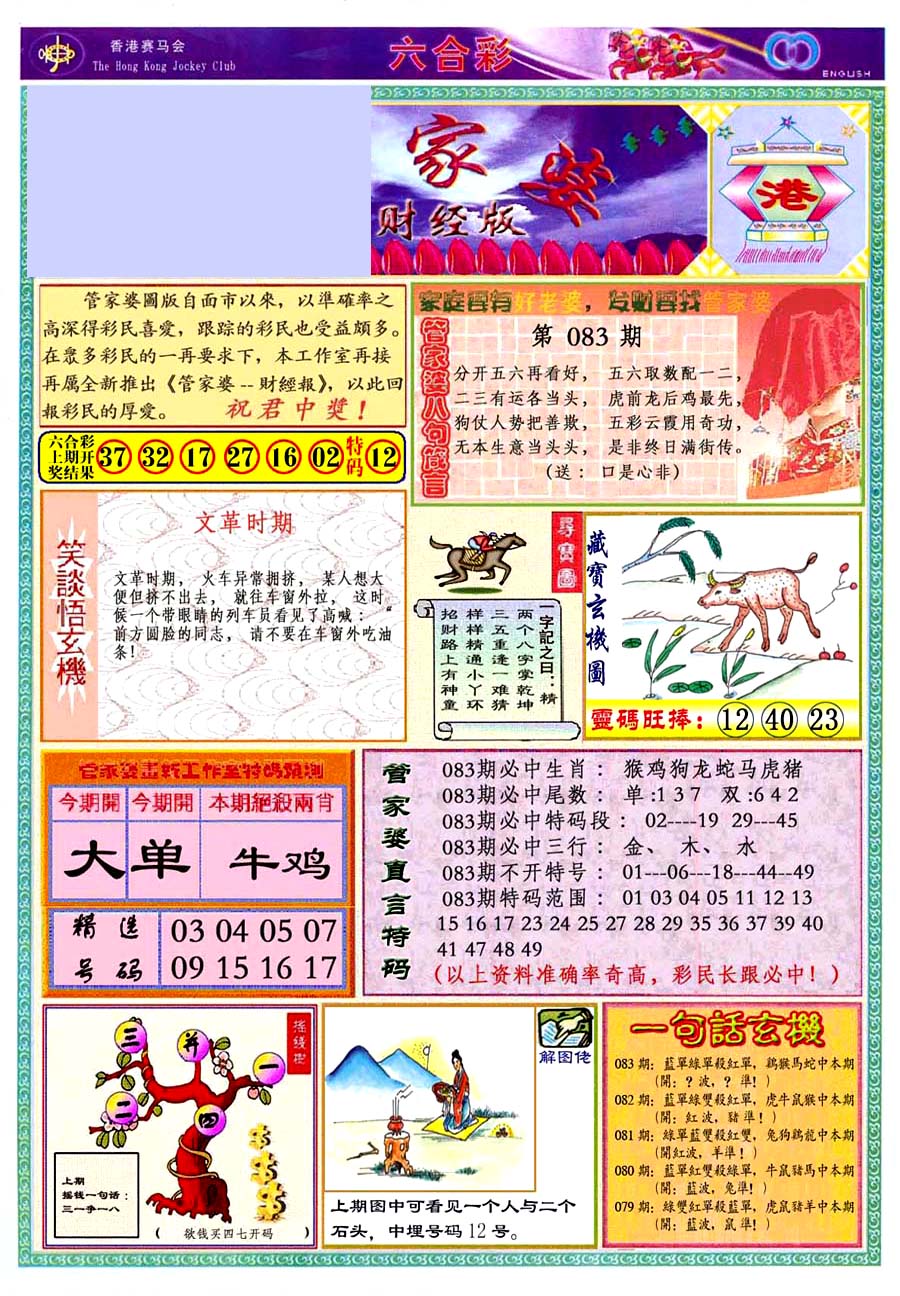 香港赛马会
The Hong Kong Jockey Club
六合彩
ENGLISH
家婆
财经版
港
管家婆圖版自面市以來，以準確率之
高深得彩民喜愛，跟踪的彩民也受益頗多。
在眾多彩民的一再要求下，本工作室再接
再厲全新推出《管家婆--財經報》，以此回
報彩民的厚愛。 祝君中獎！
六合彩
上期开
奖结果
37 32 17 27 16 02 特码 12
家庭要有好老婆，发财要找管家婆
管家婆八句箴言
第 083 期
分开五六再看好， 五六取数配一二，
二三有运各当头， 虎前龙后鸡最先，
狗仗人势把善欺， 五彩云霞用奇功，
无本生意当头头， 是非终日满街传。
(送： 口是心非)
笑談悟玄機
文革时期
文革时期， 火车异常拥挤， 某人想大
便但挤不出去， 就往车窗外拉， 这时
候一个带眼睛的列车员看见了高喊：“
前方圆脸的同志， 请不要在车窗外吃油
条！
尋寶圖
一字記之曰：精
两个八字掌乾坤
三五重逢一难猜
样样精通小丫环
招财路上有神童
藏寶玄機圖
靈碼旺捧： 12 40 23
管家婆畫新工作室特碼預測
今期開 今期開 本期絕殺兩肖
大 单 牛鸡
精选
号码
03 04 05 07
09 15 16 17
管家婆直言特码
083期必中生肖： 猴鸡狗龙蛇马虎猪
083期必中尾数： 单:1 3 7 双:6 4 2
083期必中特码段： 02----19 29---45
083期必中三行： 金、 木、 水
083期不开特号： 01---06---18---44--49
083期特码范围： 01 03 04 05 11 12 13
15 16 17 23 24 25 27 28 29 35 36 37 39 40
41 47 48 49
(以上资料准确率奇高，彩民长跟必中！)
搖钱樹
三 并 一
二 四
上期
摇钱一句话：
三一争一八
( 欲钱买四七开码 )
解图佬
上期图中可看见一个人与二个
石头，中埋号码 12 号。
一句話玄機
083 期：藍單綠單殺紅單，鷄猴馬蛇中本期
(開：？波，？準！)
082 期：藍單綠雙殺紅單，虎牛鼠猴中本期
(開：紅波，豬準！)
081 期：綠單藍雙殺紅雙，兔狗鷄龍中本期
(開紅波，羊準！)
080 期：藍單紅雙殺綠單，牛鼠豬馬中本期
(開：藍波，兔準！)
079 期：綠雙紅單殺藍單，虎鼠豬羊中本期
(開：藍波，鼠準！)